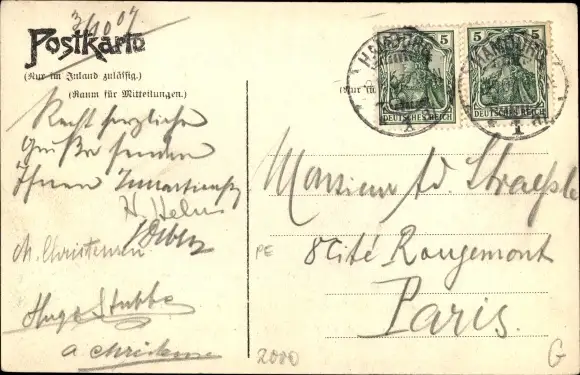 3/10 07
Postkarte
(Nur im Inland zulässig.)
(Raum für Mitteilungen.)
Recht herzliche
Grüße senden
Ihnen
H. Helms
M. Christensen
Hugo Stubbe
A. Christensen
HAMBURG
5
5
DEUTSCHES REICH
HAMBURG
DEUTSCHES REICH
1
1
(Nur für
Monsieur Ad.
8 Cité Rougemont
Paris.
PE
2000
G